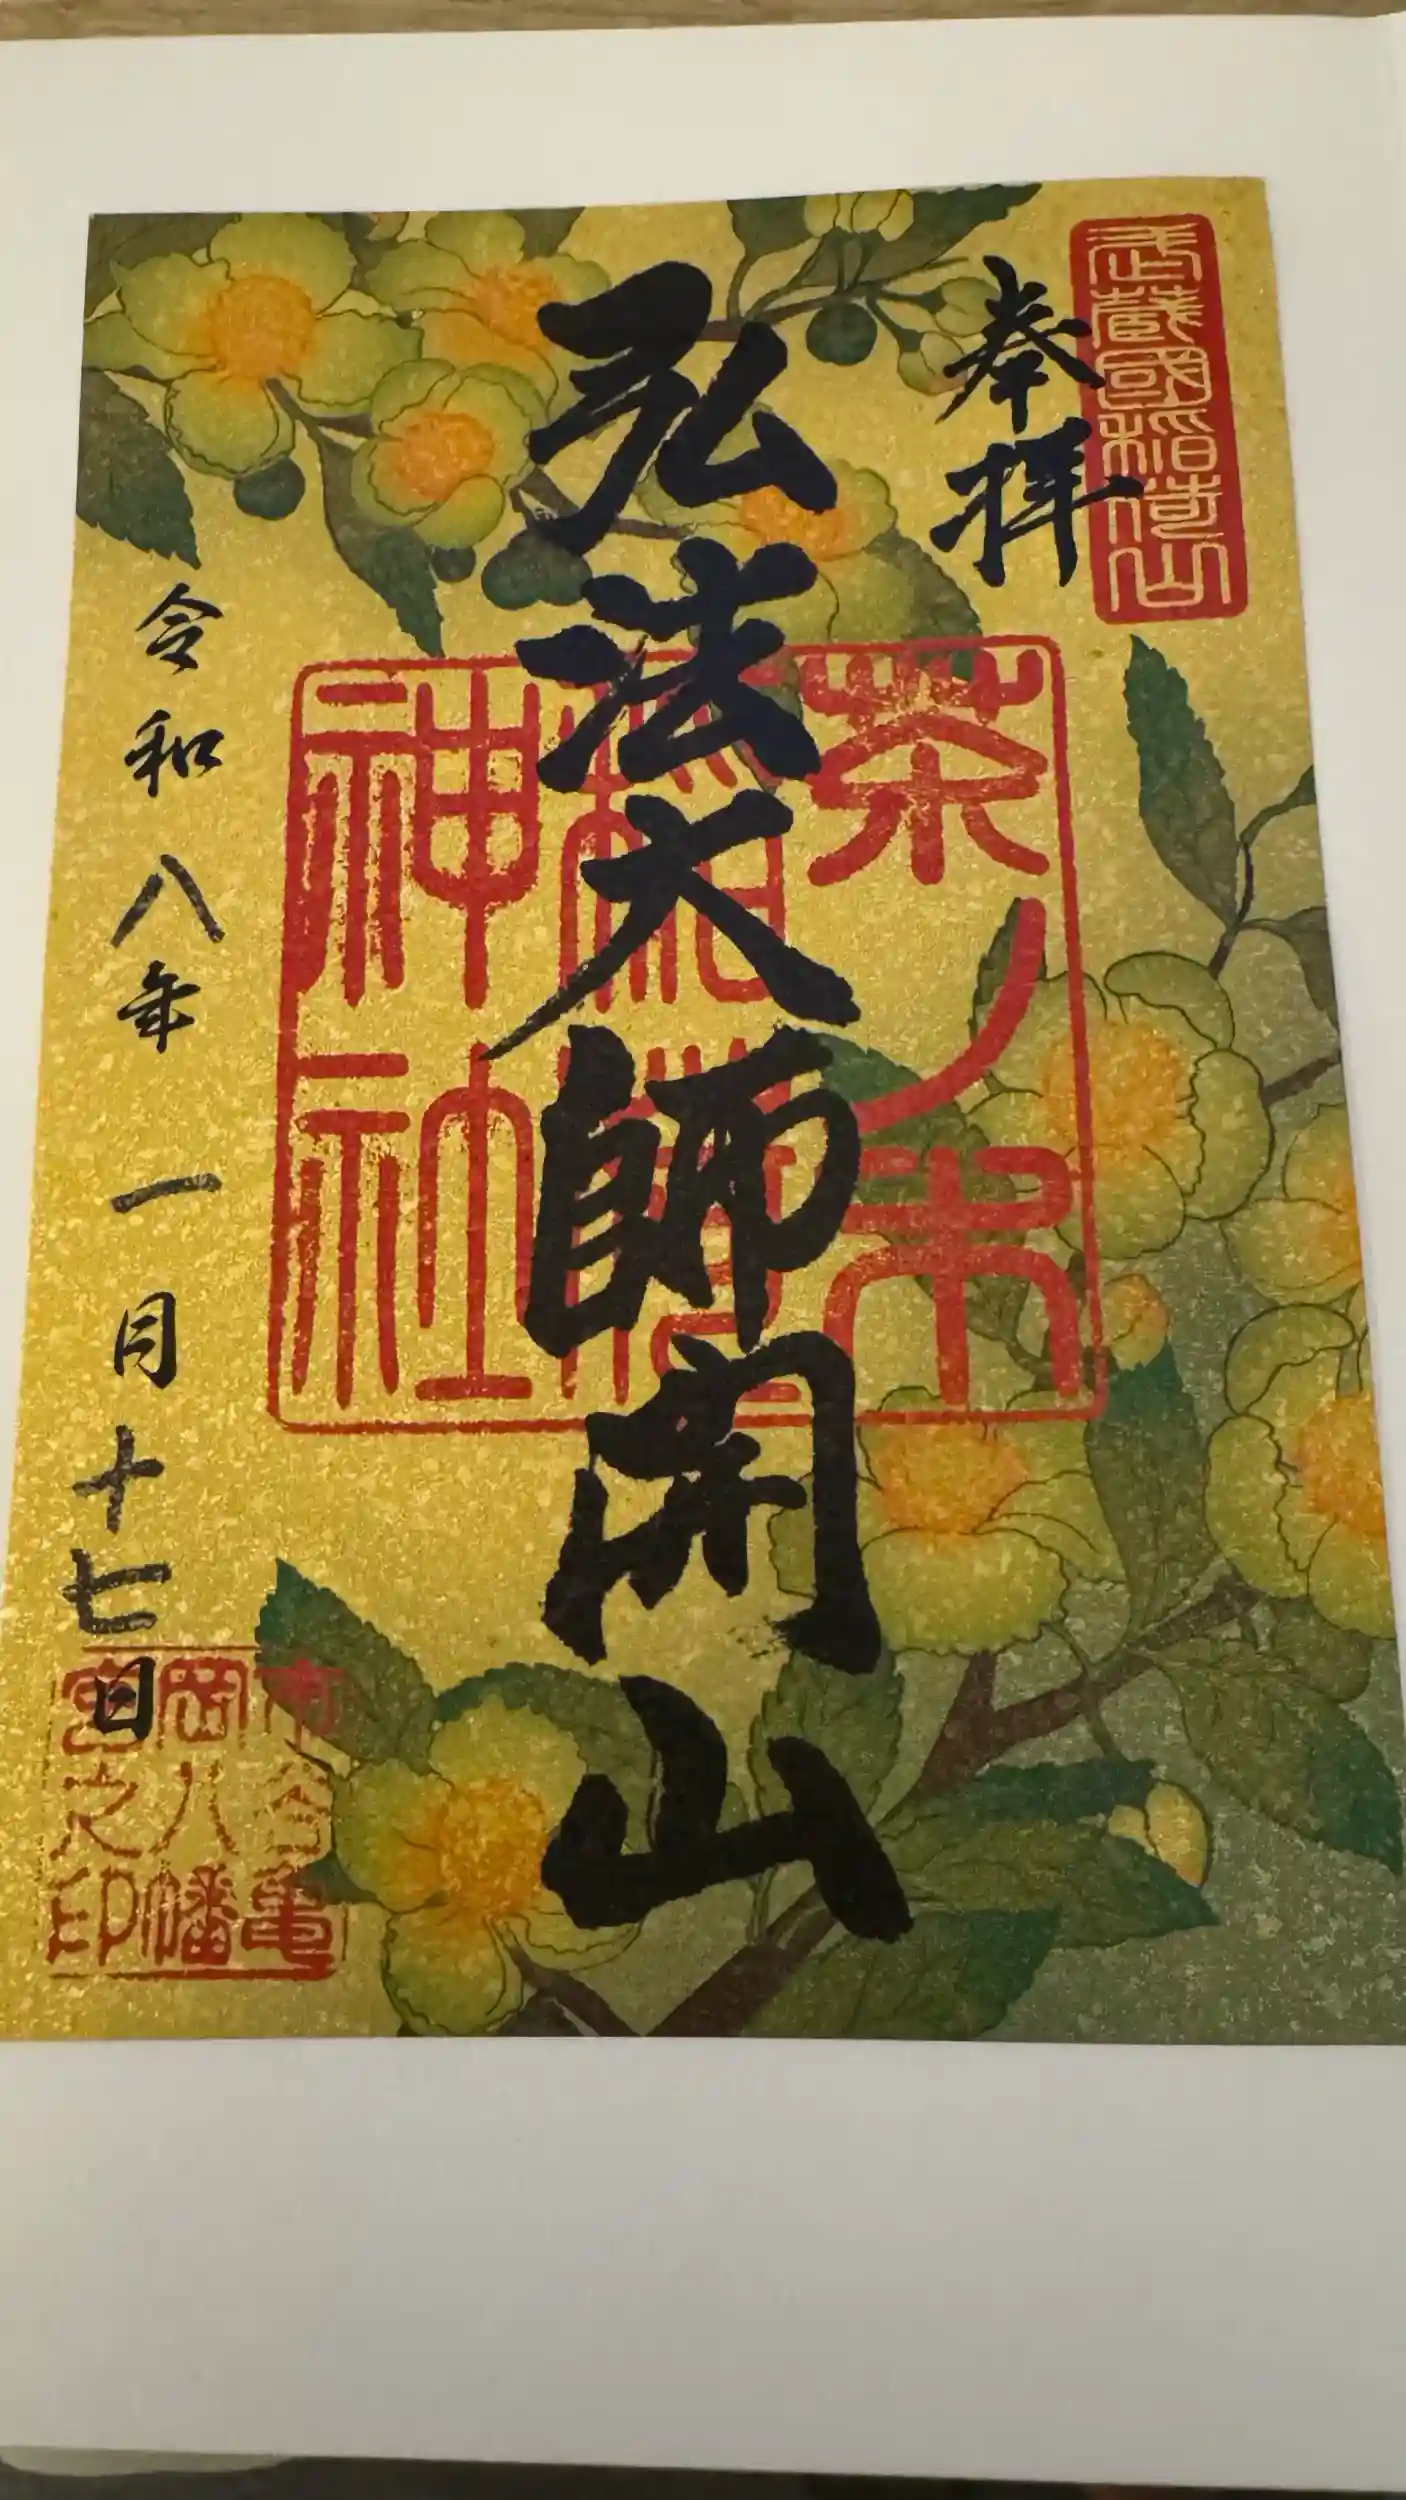 武蔵國稲荷山
奉拝
茶ノ木
稲荷
神社
弘法大師開山
令和八年一月十七日
市谷亀
岡八幡
宮之印